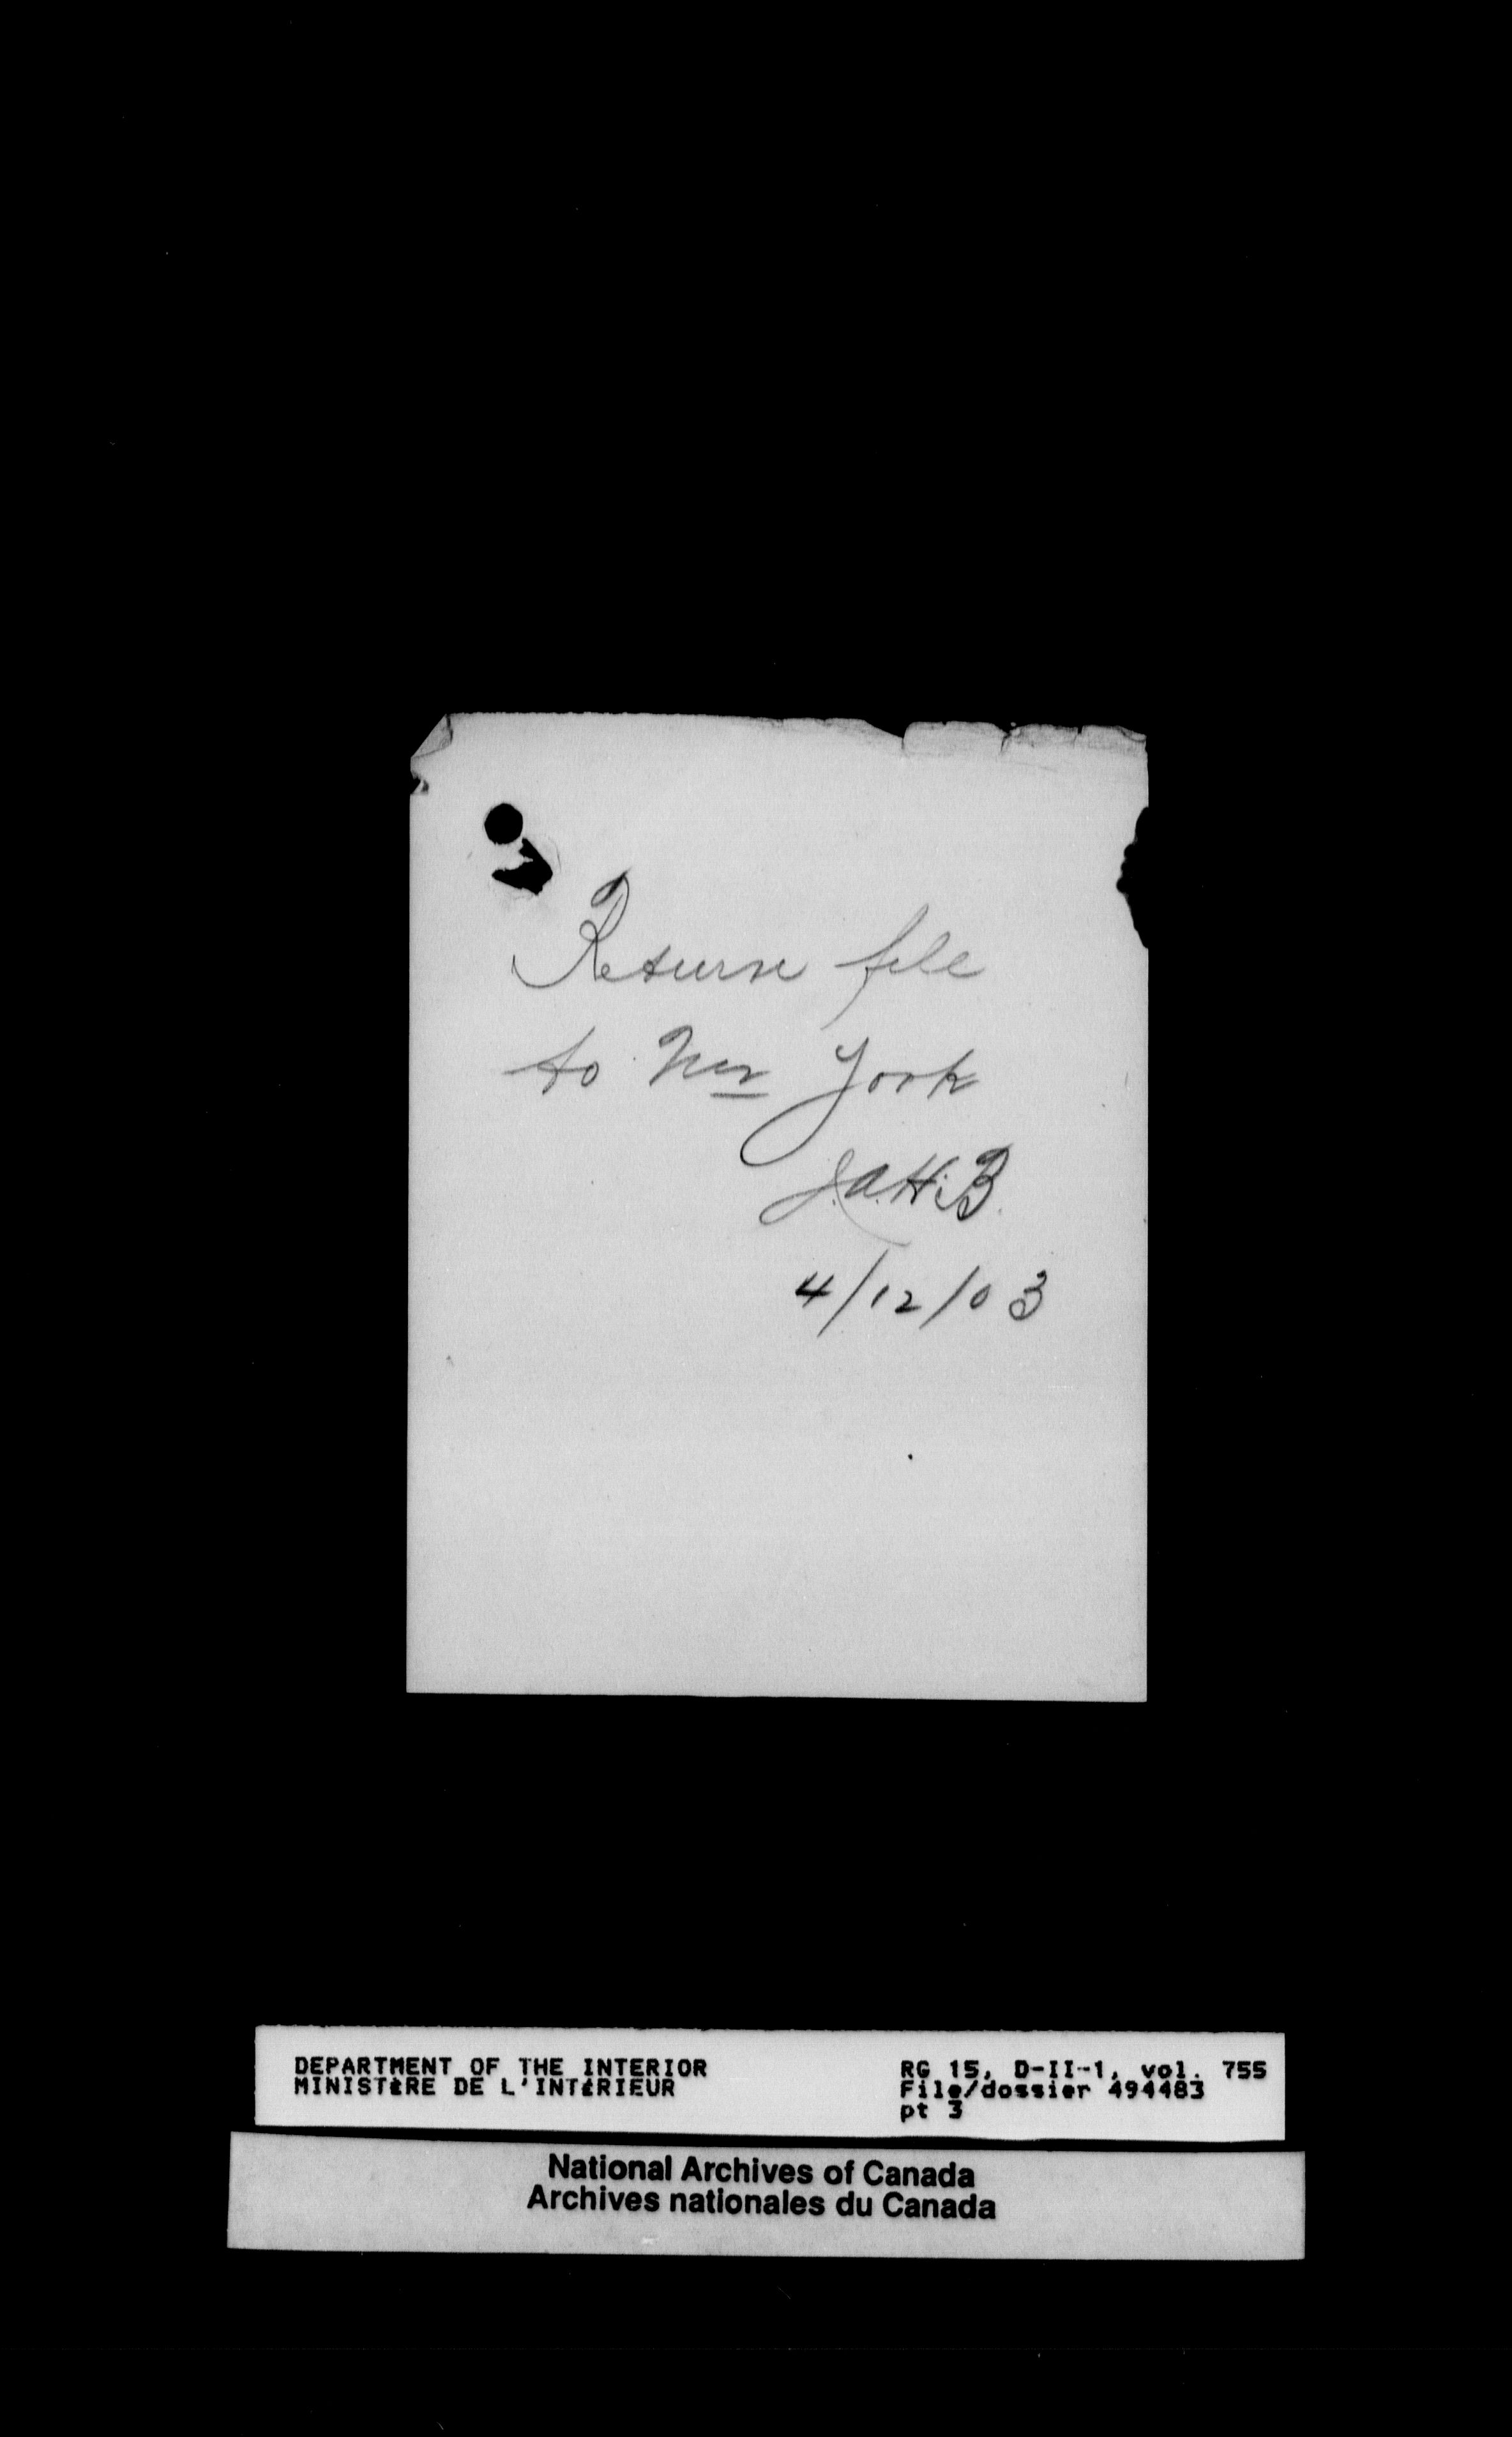 Return file
to Mr York
J.A.H.B.
4/12/03
DEPARTMENT OF THE INTERIOR
MINISTÈRE DE L'INTÉRIEUR
RG 15, D-II-1, vol. 755
File/dossier 494483
pt 3
National Archives of Canada
Archives nationales du Canada